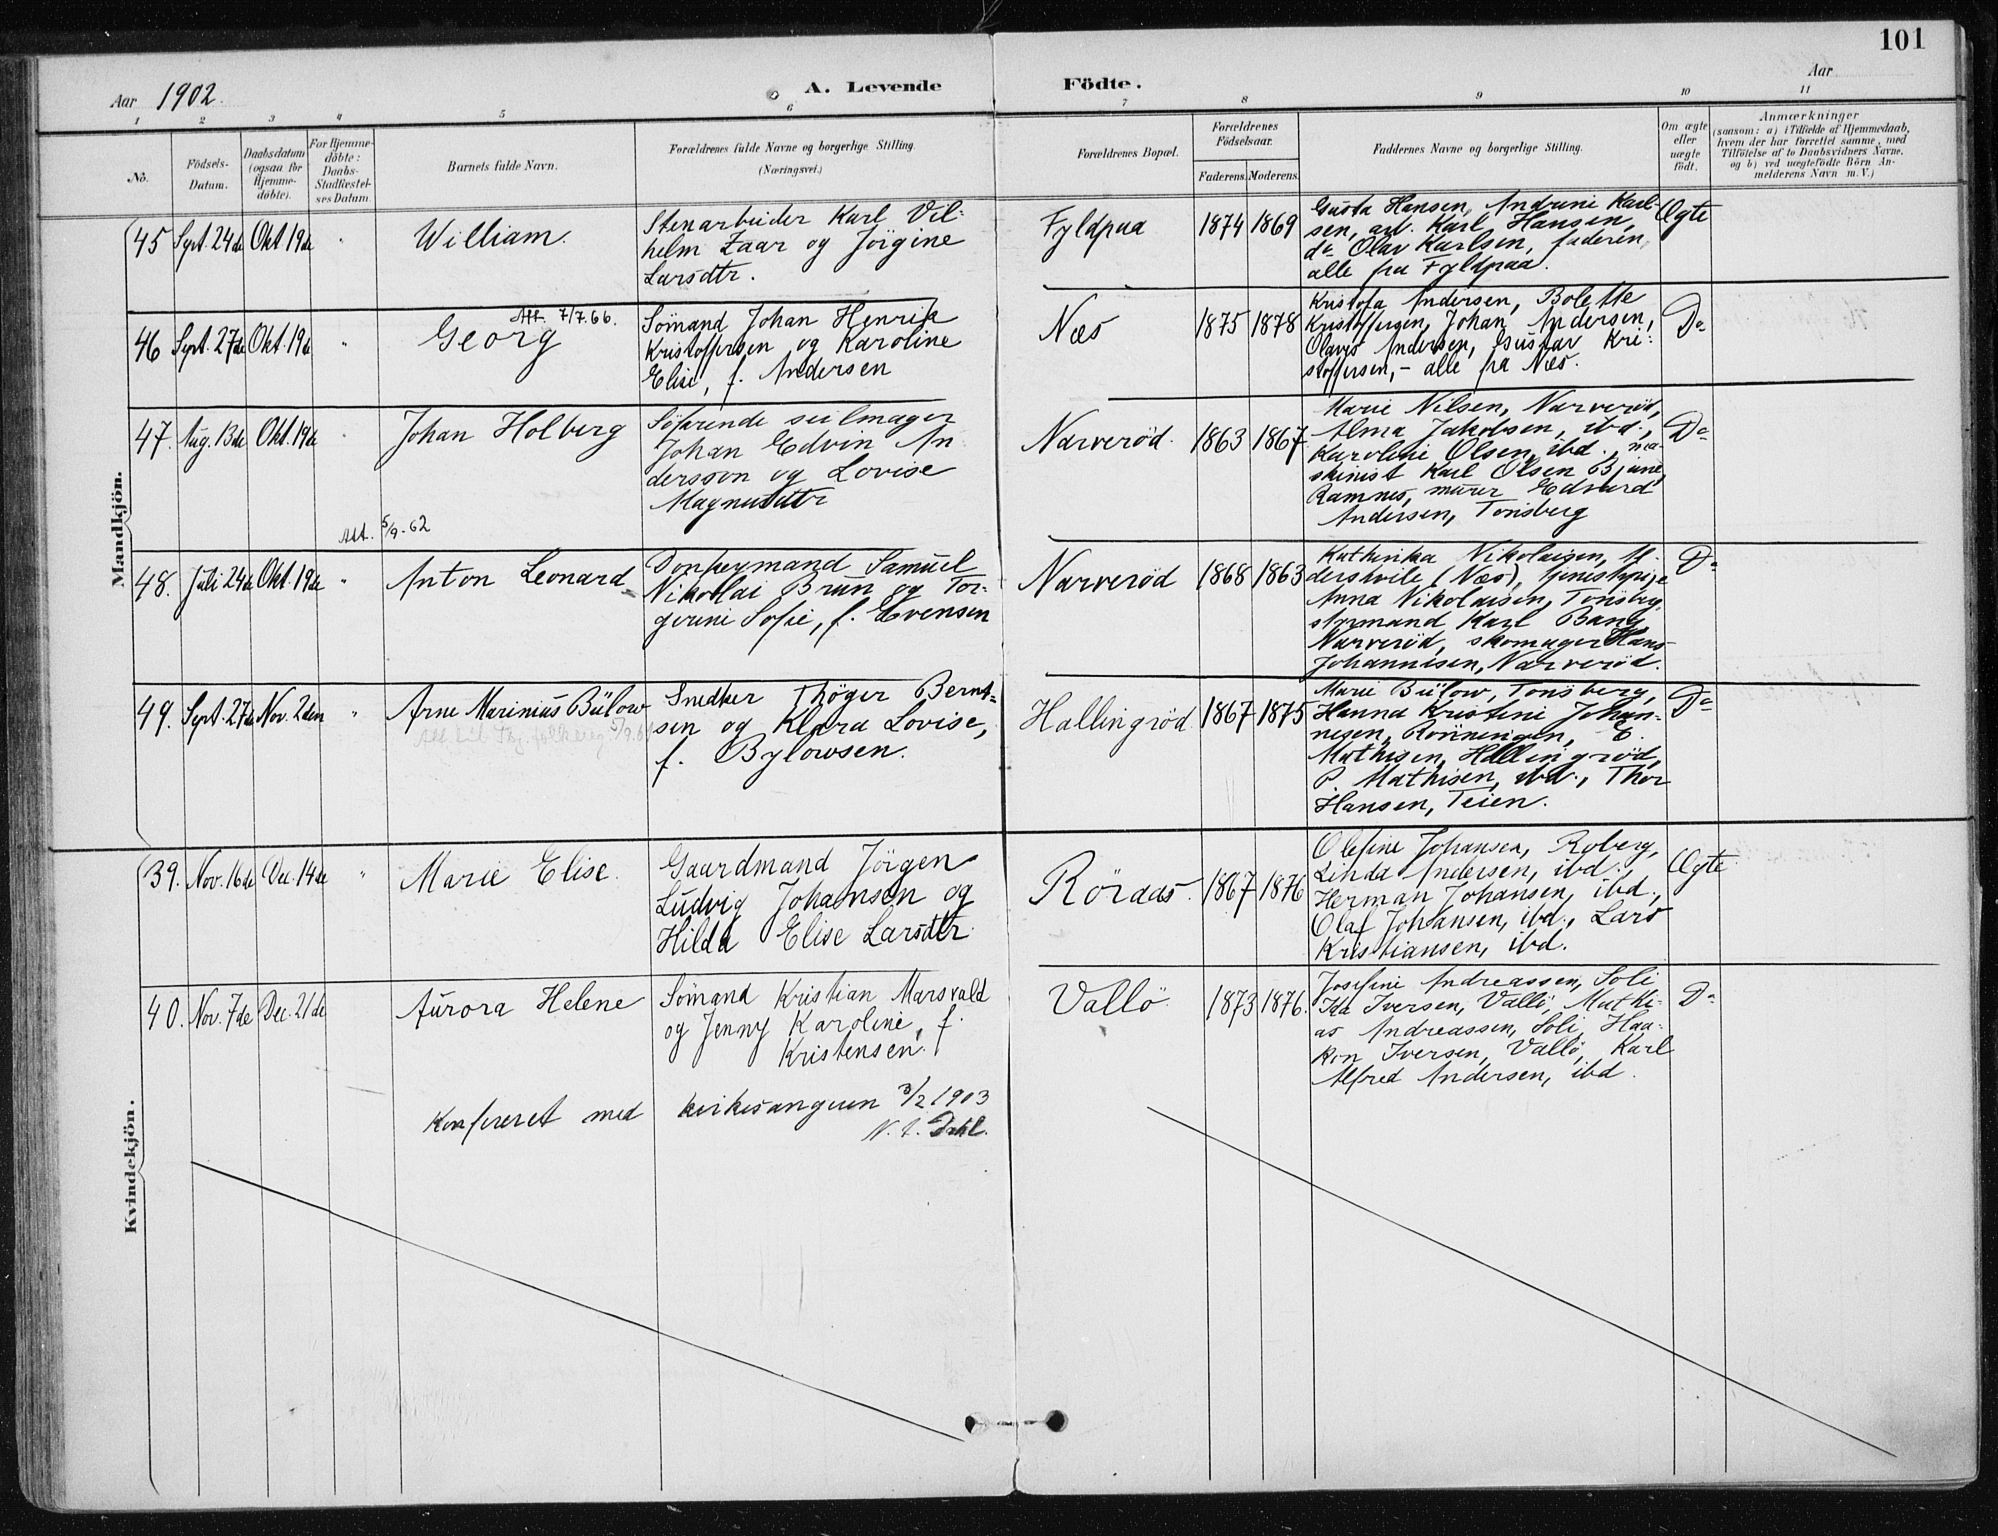 101
Aar 1902. A. Levende Fødte. Aar
1 2 3 4 5 6 7 8 9 10 11
No.
Fødsels-
Datum.
Daabsdatum
(ogsaa for
Hjemme-
døbte).
For Hjemme-
døbte:
Daabs-
Stadfæstel-
ses Datum
Barnets fulde Navn.
Forældrenes fulde Navne og borgerlige Stilling.
(Næringsvei.)
Forældrenes Bopæl.
Forældrenes
Fødselsaar.
Faderens. Moderens.
Faddernes Navne og borgerlige Stilling.
Om ægte
eller
uægte
født.
Anmærkninger
(saasom: a) i Tilfælde af Hjemmedaab,
hvem der har forrettet samme, med
Tilføielse af to Daabsvidners Navne,
og b) ved uægtefødte Børn An-
melderens Navn m. V.)
Mandkjøn.
45 Sept. 24de Okt. 19de " William.
Stenarbeider Karl Vil-
helm Zaar og Jörgine
Larsdtr.
Fyldpaa 1874 1869
Gusta Hansen, Andrine Karl-
sen, arb. Karl Hansen,
do Olav Karlsen, faderen,
alle fra Fyldpaa.
Ægte
46 Sept. 27de Okt. 19de " Georg
Att. 7/7.66.
Sömand Johan Henrik
Kristoffersen og Karoline
Elise, f. Andersen
Næs 1875 1878
Kristofa Andersen, Bolette
Kristoffersen, Johan Andersen,
Olaves Andersen, Gustav Kri-
stoffersen, - alle fra Næs.
Do
47. Aug. 13de Okt. 19de " Johan Holberg
Söfarende seilmager
Johan Edvin An
dersson og Lovise
Magnusdtr
Narverød. 1863 1867
Marie Nilsen, Narverød,
Alma Jakobsen, ibd.,
Karoline Olsen, ibd., ma-
skinist Karl Olsen Bjune,
Ramnes, murer Edvard
Andersen, Tønsberg
Do
Att. 5/9-62
48. Juli 24de Okt. 19de " Anton Leonard
Donkeymand Samuel
Nikolai Brun og Tor-
gerine Sofie, f. Evensen
Narverød 1868 1863
Kathinka Nikolaisen,
(Næs), tjenestepige
Anna Nikolaisen, Tønsberg,
styrmand Karl Bang,
Narverød, skomager Hans
Johannesen, Narverød.
Do
49. Sept. 27de Nov. 2den " Arne Marinius Bülow
Snedker Thøger Bernt-
sen og Klara Lovise,
f. Bylowsen.
Hallingrød 1867 1875
Marie Bülow, Tønsberg,
Hanna Kristine Johan-
nesen, Rønningen, E.
Mathisen, Hallingrød,
P. Mathisen, ibd., Thor
Hansen, Teien.
Do
Kvindekjøn.
39. Nov. 16de Dec. 14de " Marie Elise.
Gaardmand Jörgen
Ludvig Johansen og
Hilda Elise Larsdtr.
Röraas. 1867 1876
Olefine Johansen, Roberg,
Linda Andersen, ibd.,
Herman Johansen, ibd.,
Olaf Johansen, ibd., Lars
Kristiansen, ibd.
Ægte
40. Nov. 7de Dec. 21de Aurora Helene
Sömand Kristian Marsvald
og Jenny Karoline, f.
Kristensen.
Vallö. 1873 1876.
Josefine Andreassen, Soli
Ida Iversen, Vallö, Mathi-
as Andreassen, Soli, Haa-
kon Iversen, Vallö, Karl
Alfred Andersen, ibd.
Do
Konfereret med kirkesangeren 3/2 1903
Dahl.